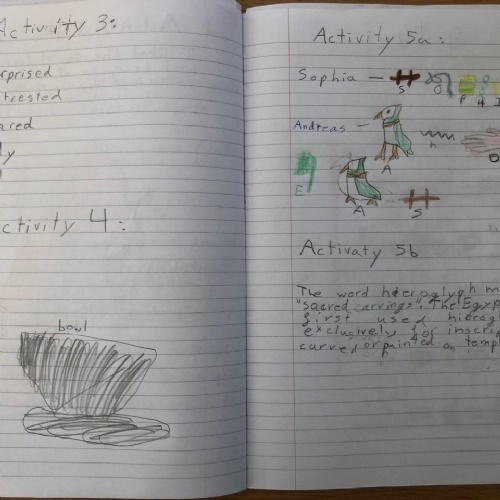 Activity 3:
rprised
trested
ared
ly
Activity 4:
bowl
Activity 5a:
Sophia —
S O P
Andreas —
A n D
E
A S
Activaty 5b
The word hieroglyph m
"sacred carvings". The Egyp
first used hierog
exclusively for inscri
carved or painted on templ